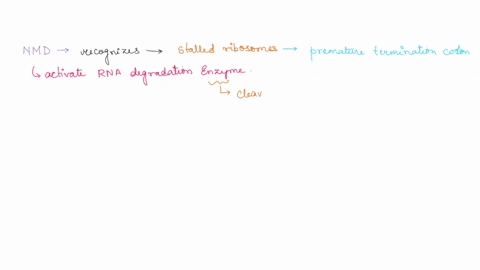 NMD → recognizes → Stalled ribosomes → premature termination codon
↳ activate RNA degradation Enzyme.
↳ cleav